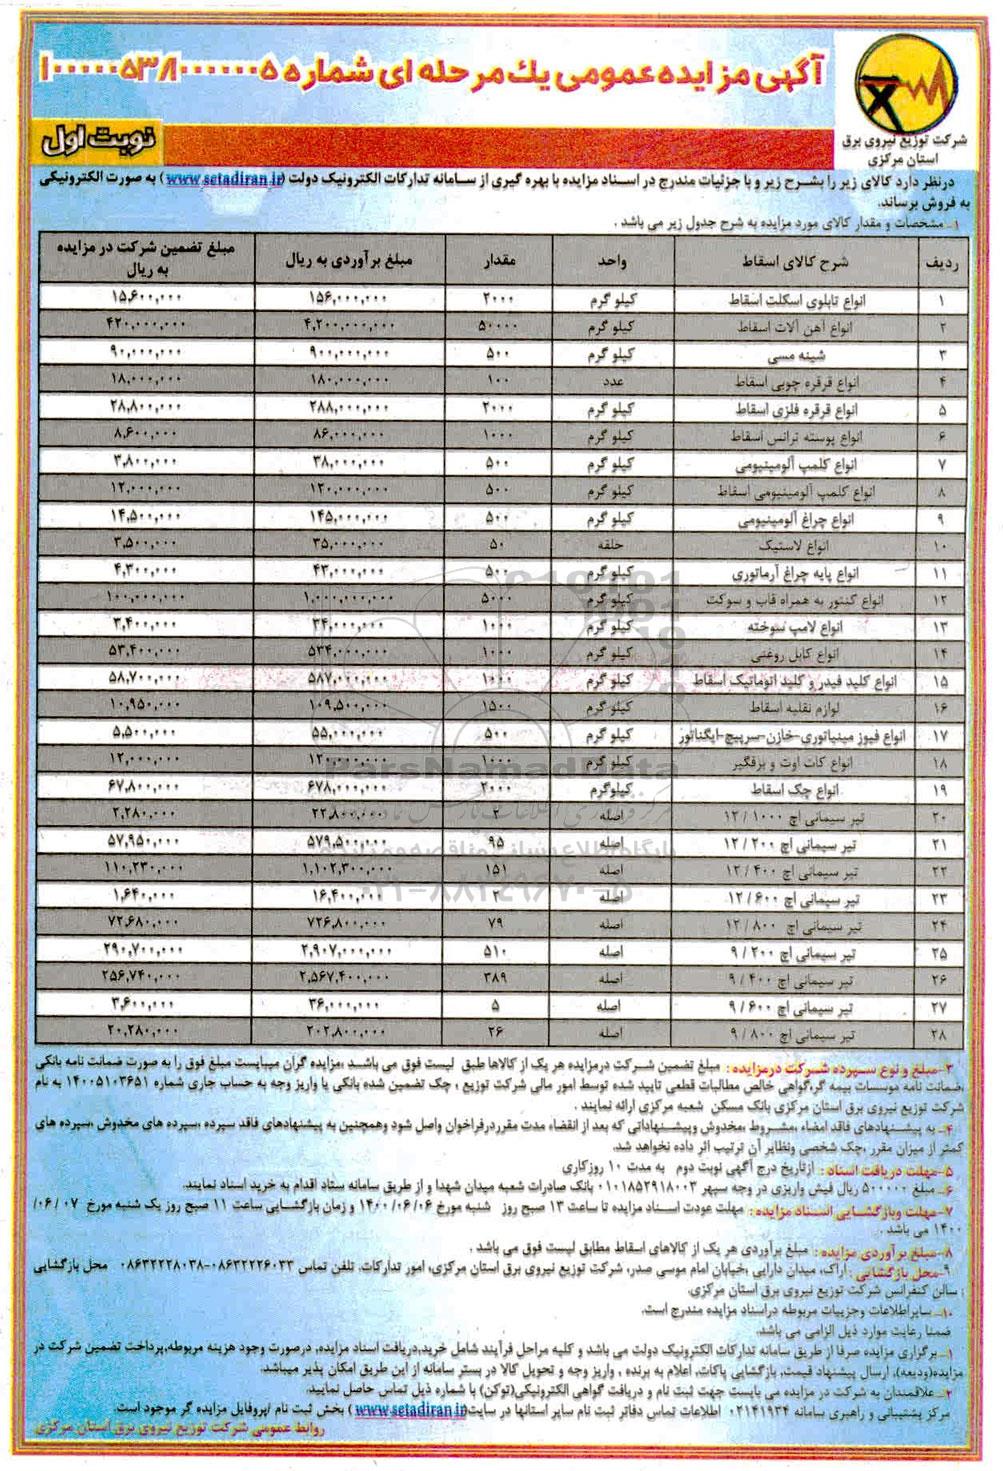 آگهی مزایده عمومی یک مرحله ای شماره ۱۰۰۰۰۰۵۳۸۰۰۰۰۰۰۵
شرکت توزیع نیروی برق
استان مرکزی
نوبت اول
درنظر دارد کالای زیر را بشرح زیر و با جزئیات مندرج در اسناد مزایده با بهره گیری از سامانه تدارکات الکترونیک دولت (www.setadiran.ir) به صورت الکترونیکی
به فروش برساند.
۱- مشخصات و مقدار کالای مورد مزایده به شرح جدول زیر می باشد .
ردیف شرح کالای اسقاط واحد مقدار مبلغ برآوردی به ریال مبلغ تضمین شرکت در مزایده به ریال
۱ انواع تابلوی اسکلت اسقاط کیلو گرم ۲۰۰۰ ۱۵۶,۰۰۰,۰۰۰ ۱۵,۶۰۰,۰۰۰
۲ انواع آهن آلات اسقاط کیلو گرم ۵۰۰۰۰ ۴,۲۰۰,۰۰۰,۰۰۰ ۴۲۰,۰۰۰,۰۰۰
۳ شینه مسی کیلو گرم ۵۰۰ ۹۰۰,۰۰۰,۰۰۰ ۹۰,۰۰۰,۰۰۰
۴ انواع قرقره چوبی اسقاط عدد ۱۰۰ ۱۸۰,۰۰۰,۰۰۰ ۱۸,۰۰۰,۰۰۰
۵ انواع قرقره فلزی اسقاط کیلو گرم ۲۰۰۰ ۲۸۸,۰۰۰,۰۰۰ ۲۸,۸۰۰,۰۰۰
۶ انواع پوسته ترانس اسقاط کیلو گرم ۱۰۰۰ ۸۶,۰۰۰,۰۰۰ ۸,۶۰۰,۰۰۰
۷ انواع کلمپ آلومینیومی کیلو گرم ۵۰۰ ۳۸,۰۰۰,۰۰۰ ۳,۸۰۰,۰۰۰
۸ انواع کلمپ آلومینیومی اسقاط کیلو گرم ۵۰۰ ۱۲۰,۰۰۰,۰۰۰ ۱۲,۰۰۰,۰۰۰
۹ انواع چراغ آلومینیومی کیلو گرم ۵۰۰ ۱۴۵,۰۰۰,۰۰۰ ۱۴,۵۰۰,۰۰۰
۱۰ انواع لاستیک حلقه ۵۰ ۳۵,۰۰۰,۰۰۰ ۳,۵۰۰,۰۰۰
۱۱ انواع پایه چراغ آرماتوری کیلو گرم ۵۰۰ ۴۳,۰۰۰,۰۰۰ ۴,۳۰۰,۰۰۰
۱۲ انواع کنتور به همراه قاب و سوکت کیلو گرم ۵۰۰۰ ۱,۰۰۰,۰۰۰,۰۰۰ ۱۰۰,۰۰۰,۰۰۰
۱۳ انواع لامپ سوخته کیلو گرم ۱۰۰۰ ۳۴,۰۰۰,۰۰۰ ۳,۴۰۰,۰۰۰
۱۴ انواع کابل روغنی کیلو گرم ۱۰۰۰ ۵۳۴,۰۰۰,۰۰۰ ۵۳,۴۰۰,۰۰۰
۱۵ انواع کلید فیدر و کلید اتوماتیک اسقاط کیلو گرم ۱۰۰۰ ۵۸۷,۰۰۰,۰۰۰ ۵۸,۷۰۰,۰۰۰
۱۶ لوازم نقلیه اسقاط کیلو گرم ۱۵۰۰ ۱۰۹,۵۰۰,۰۰۰ ۱۰,۹۵۰,۰۰۰
۱۷ انواع فیوز مینیاتوری-خازن-سرپیچ-ایگناتور کیلو گرم ۵۰۰ ۵۵,۰۰۰,۰۰۰ ۵,۵۰۰,۰۰۰
۱۸ انواع کات اوت و برقگیر کیلو گرم ۱۰۰۰ ۱۲۰,۰۰۰,۰۰۰ ۱۲,۰۰۰,۰۰۰
۱۹ انواع جک اسقاط کیلوگرم ۲۰۰۰ ۶۷۸,۰۰۰,۰۰۰ ۶۷,۸۰۰,۰۰۰
۲۰ تیر سیمانی اچ ۱۰۰۰ / ۱۲ اصله ۲ ۲۲,۸۰۰,۰۰۰ ۲,۲۸۰,۰۰۰
۲۱ تیر سیمانی اچ ۲۰۰ / ۱۲ اصله ۹۵ ۵۷۹,۵۰۰,۰۰۰ ۵۷,۹۵۰,۰۰۰
۲۲ تیر سیمانی اچ ۴۰۰ / ۱۲ اصله ۱۵۱ ۱,۱۰۲,۳۰۰,۰۰۰ ۱۱۰,۲۳۰,۰۰۰
۲۳ تیر سیمانی اچ ۶۰۰ / ۱۲ اصله ۲ ۱۶,۴۰۰,۰۰۰ ۱,۶۴۰,۰۰۰
۲۴ تیر سیمانی اچ ۸۰۰ / ۱۲ اصله ۷۹ ۷۲۶,۸۰۰,۰۰۰ ۷۲,۶۸۰,۰۰۰
۲۵ تیر سیمانی اچ ۲۰۰ / ۹ اصله ۵۱۰ ۲,۹۰۷,۰۰۰,۰۰۰ ۲۹۰,۷۰۰,۰۰۰
۲۶ تیر سیمانی اچ ۴۰۰ / ۹ اصله ۳۸۹ ۲,۵۶۷,۴۰۰,۰۰۰ ۲۵۶,۷۴۰,۰۰۰
۲۷ تیر سیمانی اچ ۶۰۰ / ۹ اصله ۵ ۳۶,۰۰۰,۰۰۰ ۳,۶۰۰,۰۰۰
۲۸ تیر سیمانی اچ ۸۰۰ / ۹ اصله ۲۶ ۲۰۲,۸۰۰,۰۰۰ ۲۰,۲۸۰,۰۰۰
ParsNamadData
۳-مبلغ و نوع سپرده شرکت درمزایده : مبلغ تضمین شرکت درمزایده هر یک از کالاها طبق لیست فوق می باشد ،مزایده گران میبایست مبلغ فوق را به صورت ضمانت نامه بانکی
،ضمانت نامه موسسات بیمه گر،گواهی خالص مطالبات قطعی تایید شده توسط امور مالی شرکت توزیع ، چک تضمین شده بانکی یا واریز وجه به حساب جاری شماره ۱۴۰۰۵۱۰۳۶۵۱ به نام
شرکت توزیع نیروی برق استان مرکزی بانک مسکن شعبه مرکزی ارائه نمایند .
۴- به پیشنهادهای فاقد امضاء ،مشروط ،مخدوش وپیشنهاداتی که بعد از انقضاء مدت مقرردرفراخوان واصل شود وهمچنین به پیشنهادهای فاقد سپرده ،سپرده های مخدوش ،سپرده های
کمتر از میزان مقرر ،چک شخصی ونظایر آن ترتیب اثر داده نخواهد شد.
۵-مهلت دریافت اسناد : ازتاریخ درج آگهی نوبت دوم به مدت ۱۰ روزکاری
۶- مبلغ ۵۰۰۰۰۰ ریال فیش واریزی در وجه سپهر ۰۱۰۱۸۵۲۹۱۸۰۰۳ بانک صادرات شعبه میدان شهدا و از طریق سامانه ستاد اقدام به خرید اسناد نمایند.
۷-مهلت وبازگشایی اسناد مزایده : مهلت عودت اسناد مزایده تا ساعت ۱۳ صبح روز شنبه مورخ ۱۴۰۰/۰۶/۰۶ و زمان بازگشایی ساعت ۱۱ صبح روز یک شنبه مورخ ۰۷ /۰۶/
۱۴۰۰ می باشد .
۸-مبلغ برآوردی مزایده : مبلغ برآوردی هر یک از کالاهای اسقاط مطابق لیست فوق می باشد .
۹-محل بازگشایی : اراک، میدان دارایی ،خیابان امام موسی صدر، شرکت توزیع نیروی برق استان مرکزی، امور تدارکات. تلفن تماس ۰۸۶۳۲۲۲۶۰۳۳-۰۸۶۳۲۲۲۸۰۳۸ محل بازگشایی
: سالن کنفرانس شرکت توزیع نیروی برق استان مرکزی.
۱۰- سایراطلاعات وجزییات مربوطه دراسناد مزایده مندرج است.
ضمنا رعایت موارد ذیل الزامی می باشد.
۱-برگزاری مزایده صرفا از طریق سامانه تدارکات الکترونیک دولت می باشد و کلیه مراحل فرآیند شامل خرید،دریافت اسناد مزایده، درصورت وجود هزینه مربوطه،پرداخت تضمین شرکت در
مزایده(ودیعه)، ارسال پیشنهاد قیمت، بازگشایی پاکات، اعلام به برنده ، واریز وجه و تحویل کالا در بستر سامانه از این طریق امکان پذیر میباشد.
۲- علاقمندان به شرکت در مزایده می بایست جهت ثبت نام و دریافت گواهی الکترونیکی(توکن) با شماره ذیل تماس حاصل نمایید.
مرکز پشتیبانی و راهبری سامانه ۰۲۱۴۱۹۳۴ اطلاعات تماس دفاتر ثبت نام سایر استانها در سایت (www.setadiran.ir) بخش ثبت نام /پروفایل مزایده گر موجود است.
روابط عمومی شرکت توزیع نیروی برق استان مرکزی